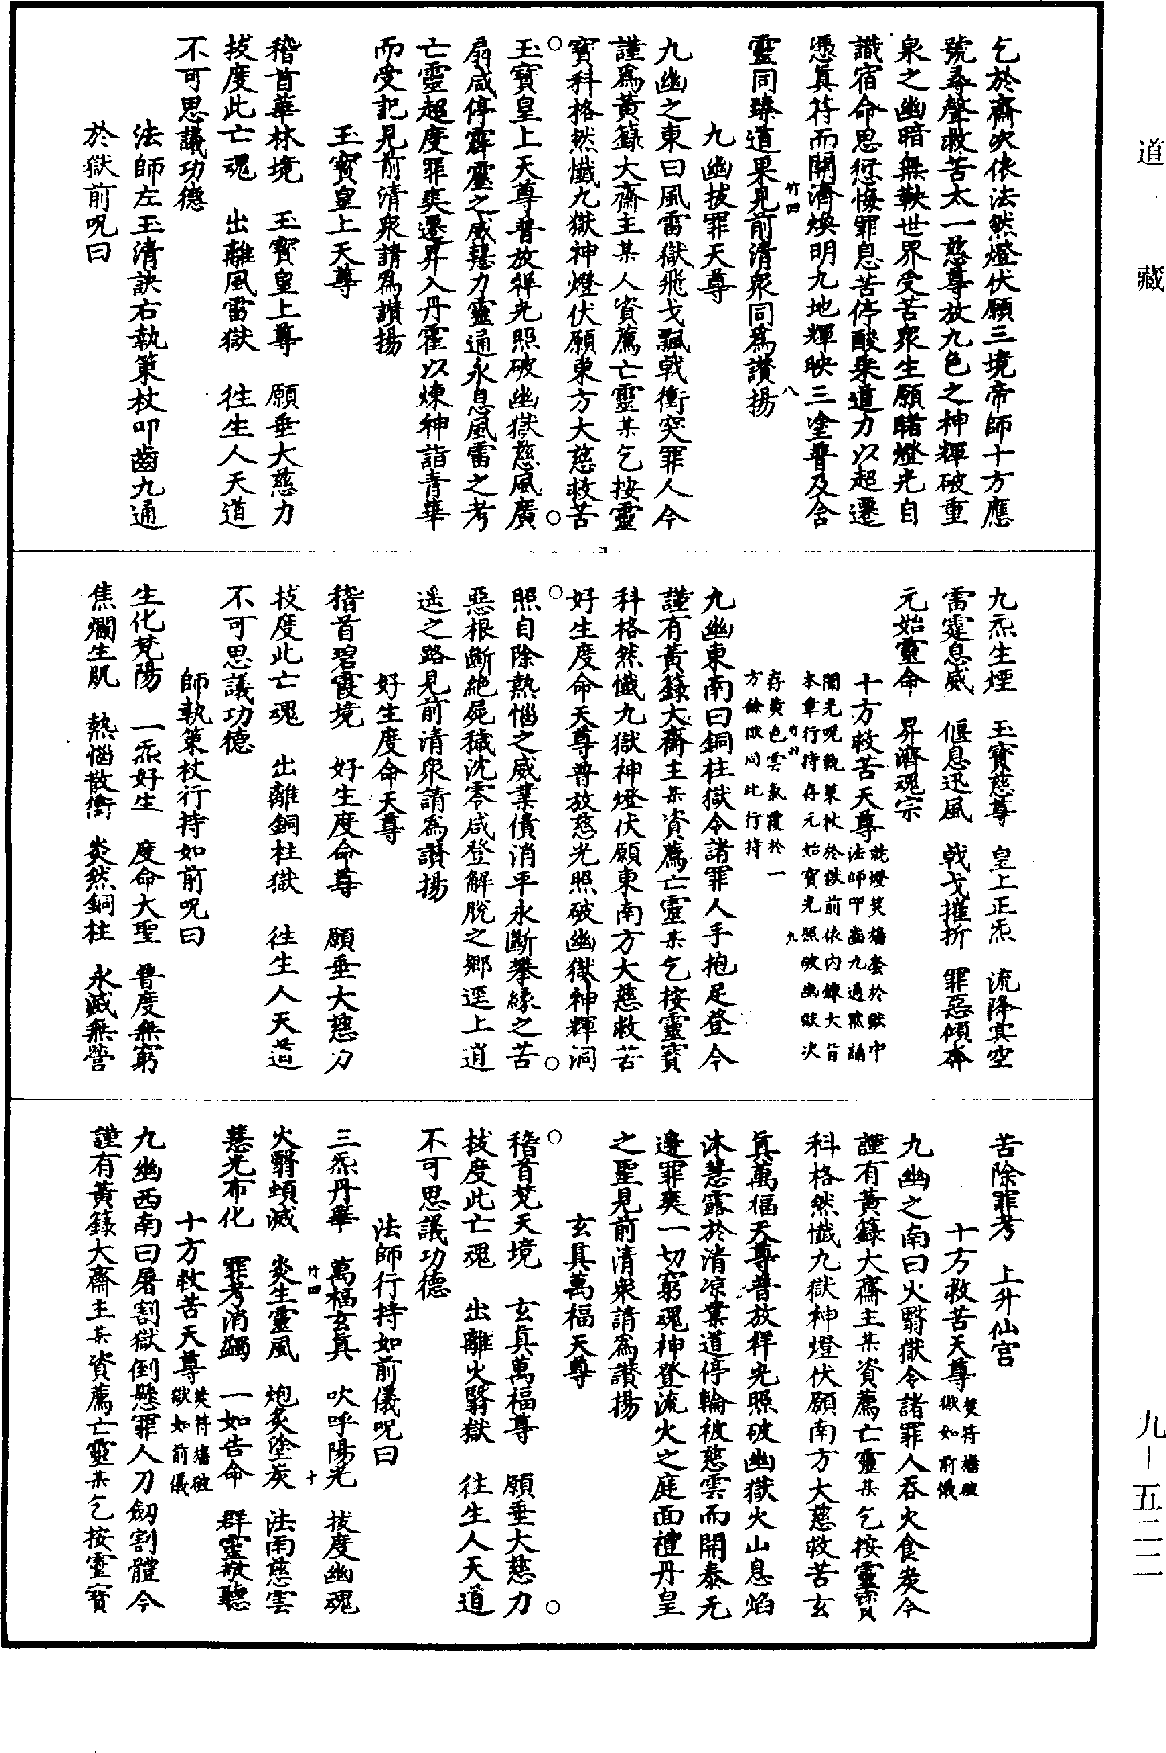 道藏
九—五二二
乞於齋次依法然燈伏願三境帝師十方應
號尋聲救苦太一慈尊放九色之神輝破重
泉之幽暗無鞅世界受苦眾生願睹燈光自
識宿命思愆悔罪息苦停酸乘道力以超遷
憑真符而開濟煥明九地輝映三塗普及含
靈同臻道果見前清眾同為讚揚
竹四
八
九幽拔罪天尊
九幽之東曰風雷獄飛戈飄戟衝突罪人今
謹為黃籙大齋主某人資薦亡靈某乞按靈
寶科格然懺九獄神燈伏願東方大慈救苦
玉寶皇上天尊普放祥光照破幽獄慈風廣
扇咸停霹靂之威慧力靈通永息風雷之考
亡靈超度罪爽遷昇入丹霍以煉神詣青華
而受記見前清眾請為讚揚
玉寶皇上天尊
稽首華林境 玉寶皇上尊 願垂大慈力
拔度此亡魂 出離風雷獄 往生人天道
不可思議功德
法師左玉清訣右執策杖叩齒九通
於獄前呪曰
九炁生煙 玉寶慈尊 皇上正炁 流降寘空
雷霆息威 偃息迅風 戟戈摧折 罪惡傾奔
元始靈命 昇濟魂宗
十方救苦天尊就燈焚牆壺於獄中
法師叩齒九通默誦
開光呪執策杖於獄前依內鍊大旨
本章行持存元始寶光照破幽獄次
存黃色雲氣覆於一
方餘獄同此行持
九
九幽東南曰銅柱獄令諸罪人手抱足登今
謹有黃籙大齋主某資薦亡靈某乞按靈寶
科格然懺九獄神燈伏願東南方大慈救苦
好生度命天尊普放慈光照破幽獄神輝洞
照自除熱惱之威業債消平永斷攀緣之苦
惡根斷絕屍穢沈零咸登解脫之鄉逕上逍
遥之路見前清眾請為讚揚
好生度命天尊
稽首碧霞境 好生度命尊 願垂大慈力
拔度此亡魂 出離銅柱獄 往生人天道
不可思議功德
師執策杖行持如前呪曰
生化梵陽 一炁好生 度命大聖 普度無窮
焦爛生肌 熱惱散衝 炎然銅柱 永滅無營
苦除罪考 上升仙宮
十方救苦天尊焚符牆破
獄如前儀
九幽之南曰火翳獄令諸罪人吞火食炭今
謹有黃籙大齋主某資薦亡靈某乞按靈寶
科格然懺九獄神燈伏願南方大慈救苦玄
真萬福天尊普放祥光照破幽獄火山息焰
沐慧露於清涼業道停輪被慈雲而開泰无
邊罪爽一切窮魂神登流火之庭面禮丹皇
之聖見前清眾請為讚揚
玄真萬福天尊
稽首梵天境 玄真萬福尊 願垂大慈力
拔度此亡魂 出離火翳獄 往生人天道
不可思議功德
法師行持如前儀呪曰
三炁丹華 萬福玄真 吹呼陽光 拔度幽魂
竹四
十
火翳頓滅 炎生靈風 炮炙塗炭 法雨慈雲
慧光布化 罪考消蠲 一如告命 群靈敬聽
十方救苦天尊焚符牆破
獄如前儀
九幽西南曰屠割獄倒懸罪人刀劒割體今
謹有黃籙大齋主某資薦亡靈某乞按靈寶